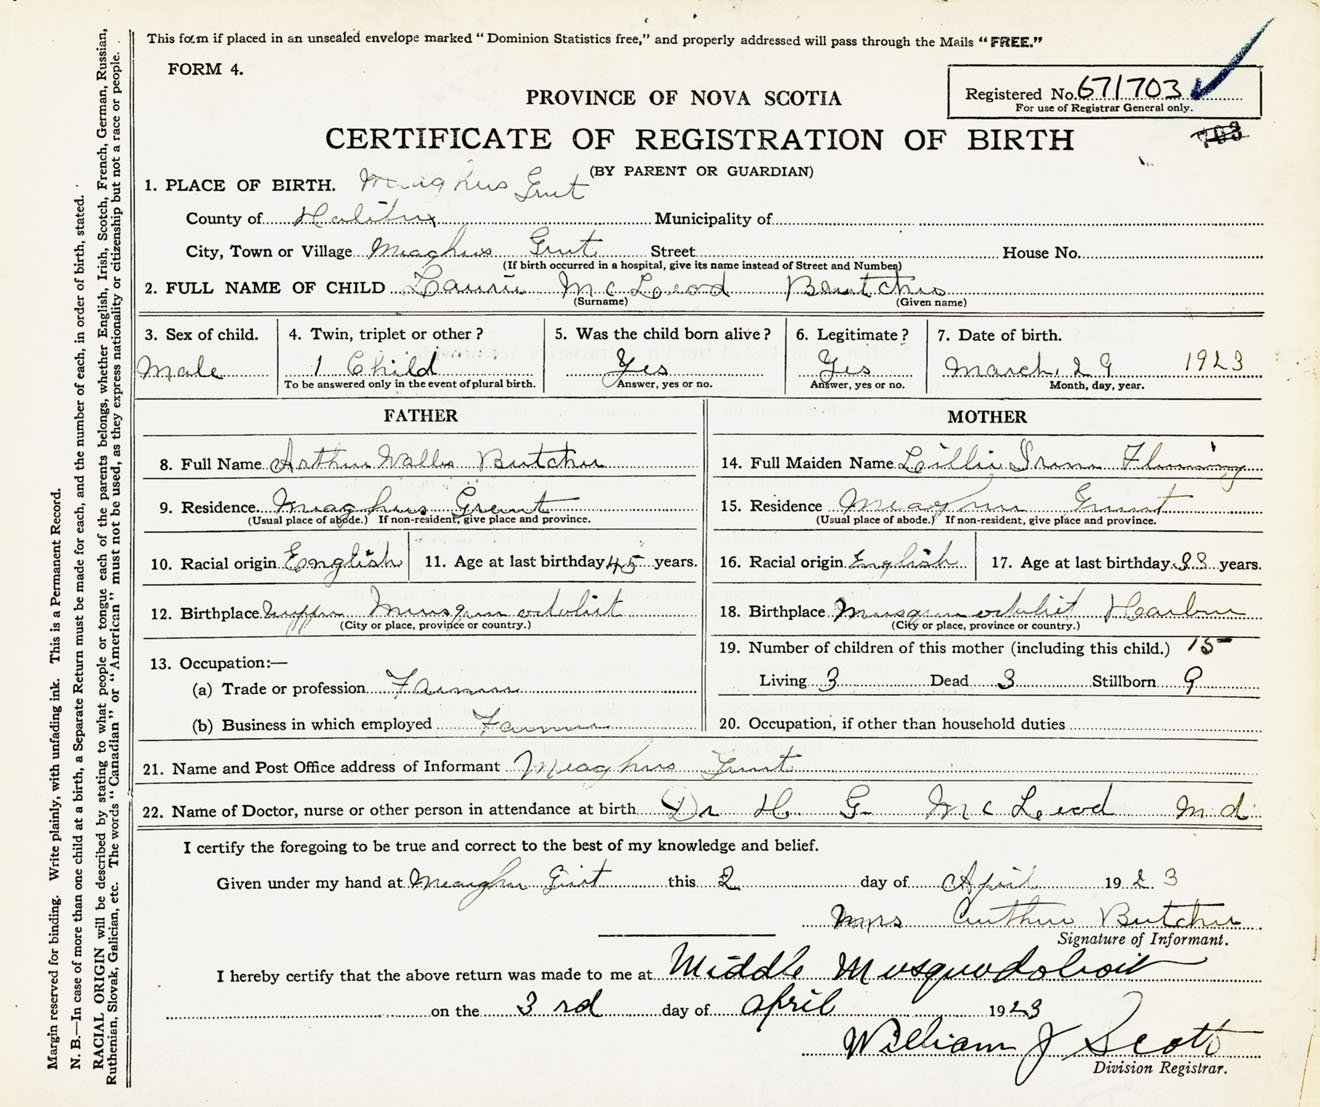 This form if placed in an unsealed envelope marked "Dominion Statistics free," and properly addressed will pass through the Mails "FREE."
FORM 4.
Registered No. 671703
For use of Registrar General only.
703
PROVINCE OF NOVA SCOTIA
CERTIFICATE OF REGISTRATION OF BIRTH
(BY PARENT OR GUARDIAN)
1. PLACE OF BIRTH. Meaghus Grut
County of Halifax Municipality of
City, Town or Village Meaghus Grut Street House No.
(If birth occurred in a hospital, give its name instead of Street and Number)
2. FULL NAME OF CHILD Laurie McLeod Butcher
(Surname) (Given name)
3. Sex of child. 4. Twin, triplet or other? 5. Was the child born alive? 6. Legitimate? 7. Date of birth.
Male 1 Child Yes Yes March, 29 1923
To be answered only in the event of plural birth. Answer, yes or no. Answer, yes or no. Month, day, year.
FATHER MOTHER
8. Full Name Arthur Wallis Butcher 14. Full Maiden Name Lillie Flemming
9. Residence Meaghus Grent 15. Residence Meaghus Grunt
(Usual place of abode.) If non-resident, give place and province. (Usual place of abode.) If non-resident, give place and province.
10. Racial origin English 11. Age at last birthday 45 years. 16. Racial origin English 17. Age at last birthday 33 years.
12. Birthplace 18. Birthplace
(City or place, province or country.) (City or place, province or country.)
13. Occupation:— 19. Number of children of this mother (including this child.) 15
(a) Trade or profession Farmer Living 3 Dead 3 Stillborn 9
(b) Business in which employed Farmer 20. Occupation, if other than household duties
21. Name and Post Office address of Informant Meaghus Grut
22. Name of Doctor, nurse or other person in attendance at birth Dr H G McLeod Md
I certify the foregoing to be true and correct to the best of my knowledge and belief.
Given under my hand at Meaghus Grut this 2 day of April 1923
Mrs Arthur Butcher
Signature of Informant.
I hereby certify that the above return was made to me at Middle Musquodoboit
on the 3rd day of April 1923
William J Scott
Division Registrar.
Margin reserved for binding. Write plainly, with unfading ink. This is a Permanent Record.
N. B.—In case of more than one child at a birth, a Separate Return must be made for each, and the number of each, in order of birth, stated.
RACIAL ORIGIN will be described by stating to what people or tongue each of the parents belongs, whether English, Irish, Scotch, French, German, Russian,
Ruthenian, Slovak, Galician, etc. The words "Canadian" or "American" must not be used, as they express nationality or citizenship but not a race or people.